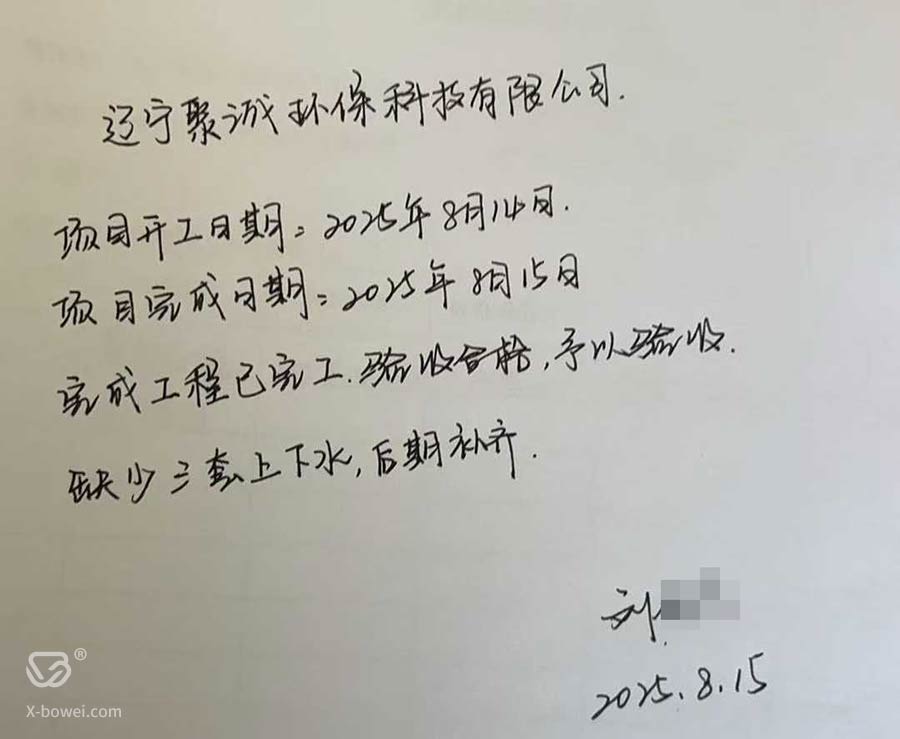 辽宁聚诚环保科技有限公司.
项目开工日期:2025年8月14日.
项目完成日期:2025年8月15日
完成工程已完工.验收合格,予以验收.
缺少三套上下水,后期补齐.
刘
2025.8.15
®
X-bowei.com